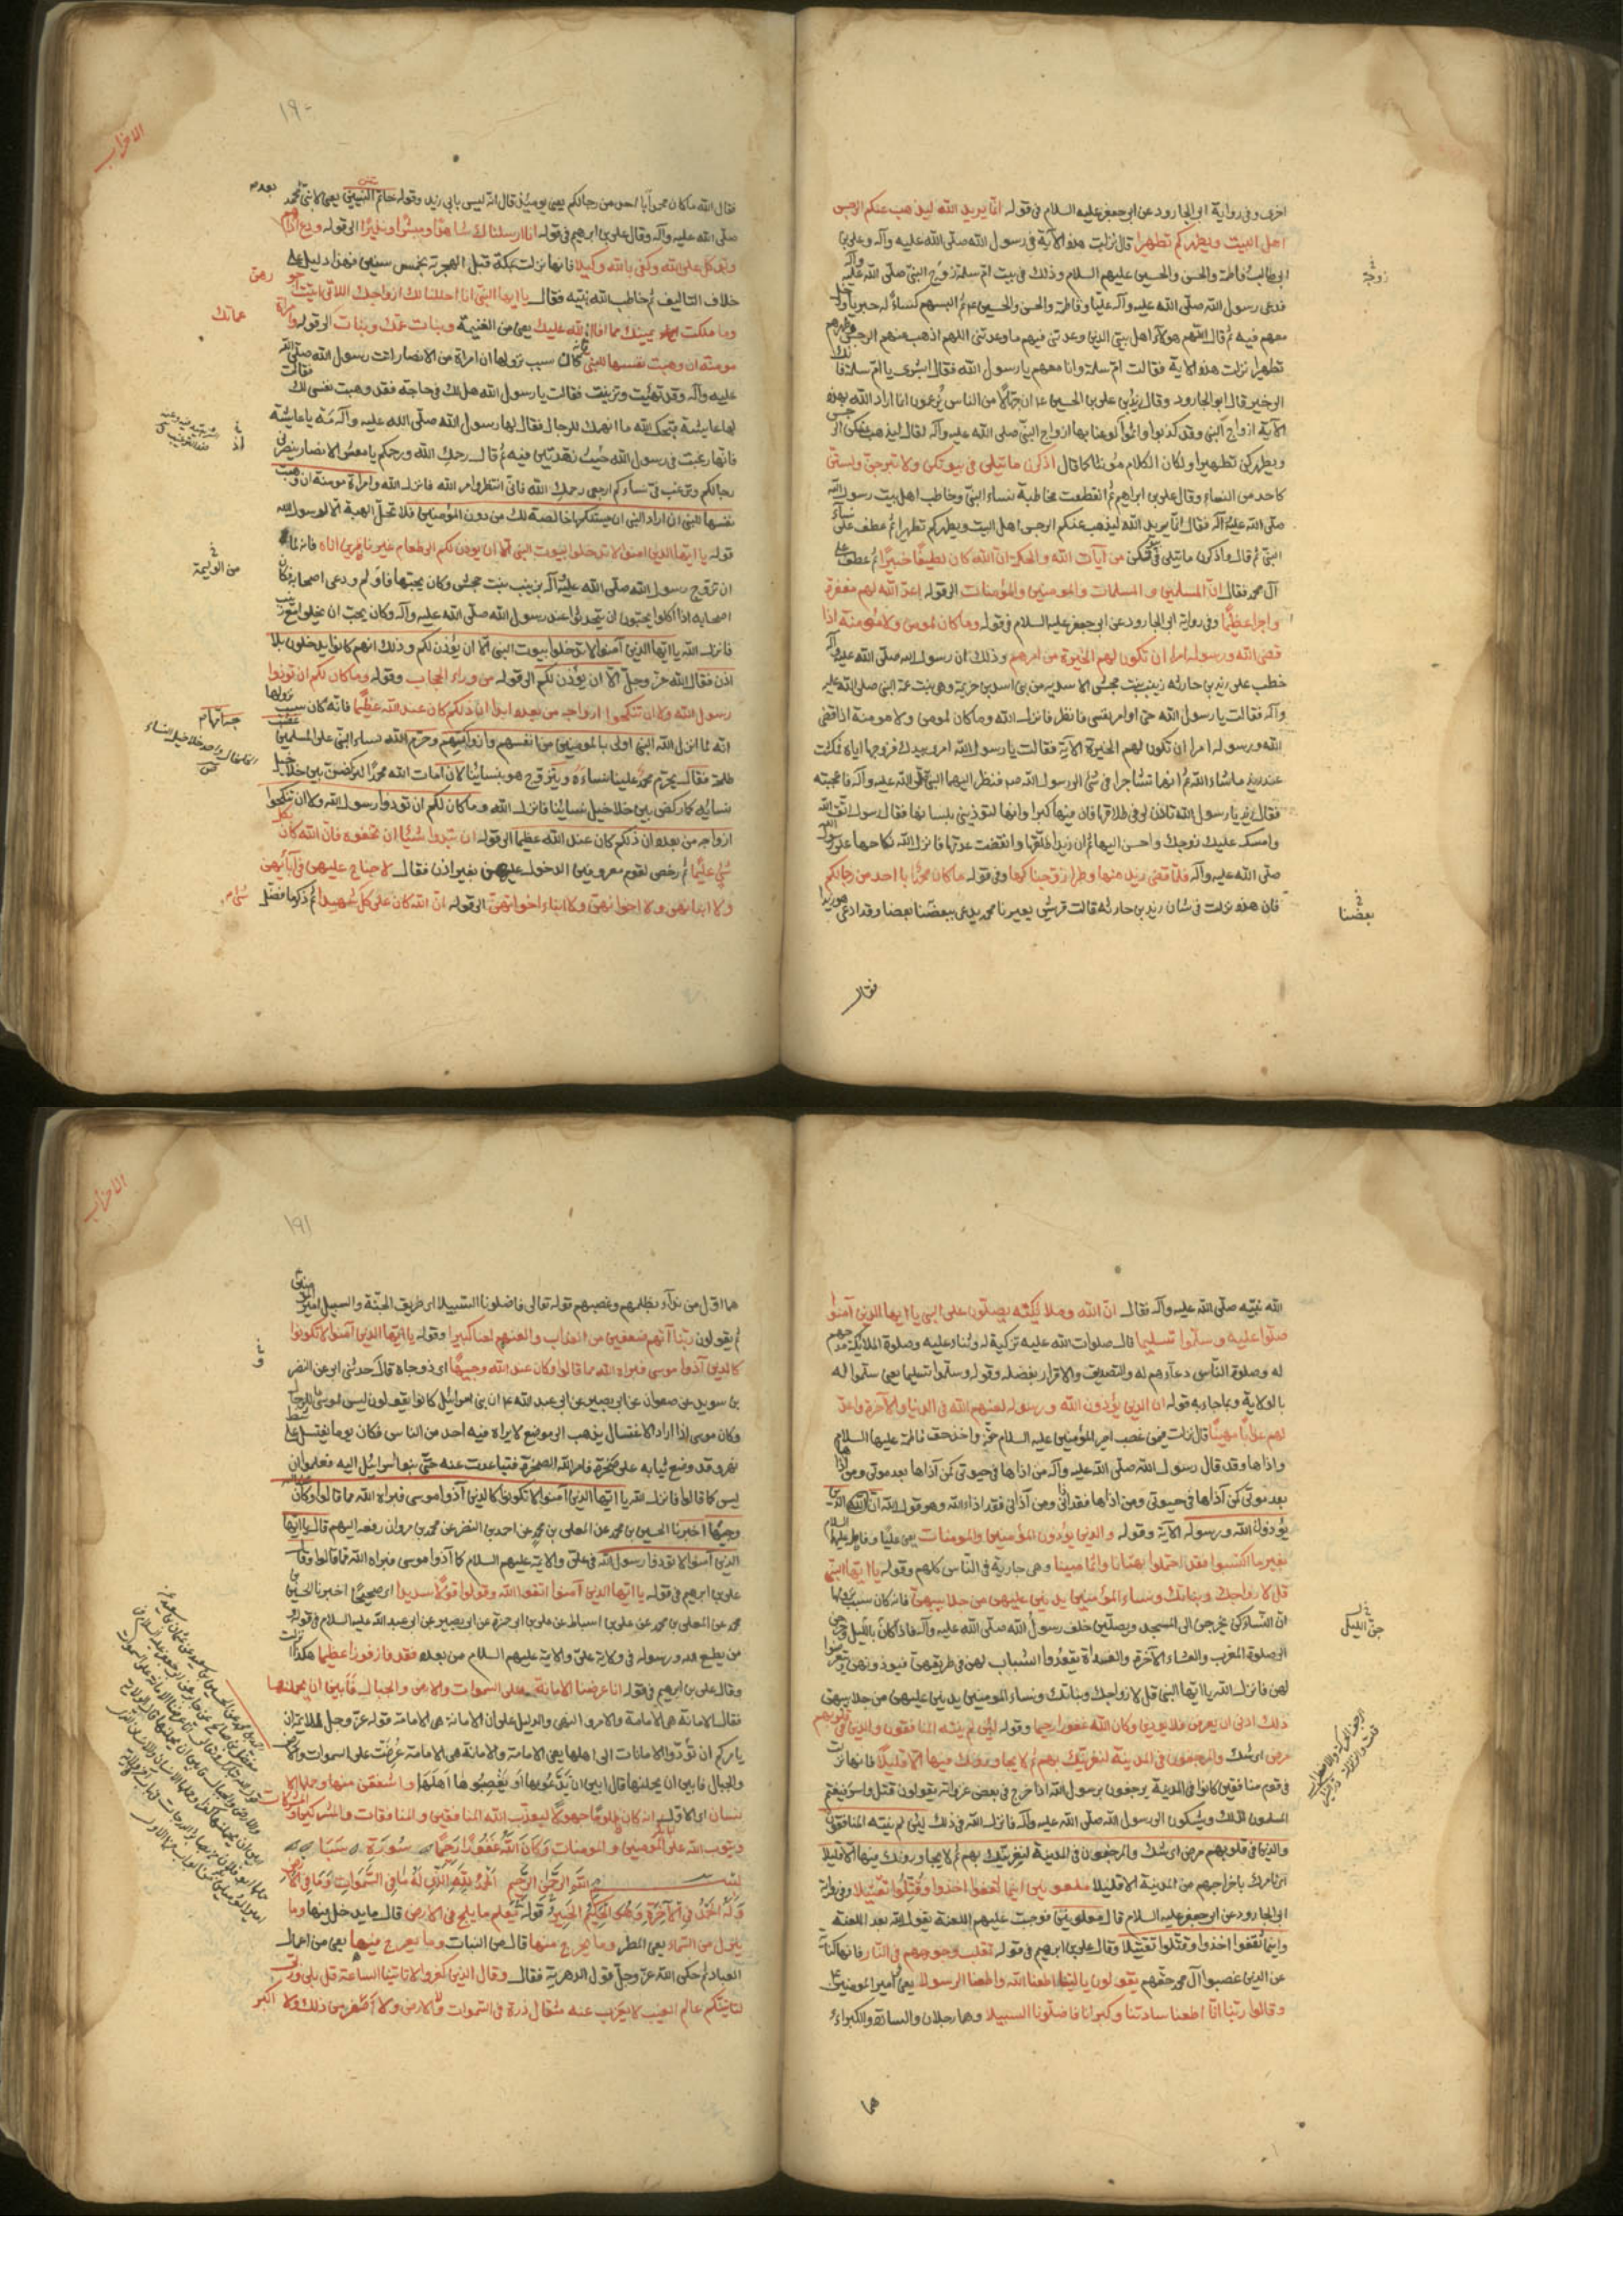 اخرى وفى رواية ابى الجارود عن ابى جعفر عليه السلام فى قوله انما يريد الله ليذهب عنكم الرجس
اهل البيت ويطهركم تطهيرا قال نزلت هذه الآية فى رسول الله صلى الله عليه وآله وعلى بن
ابى طالب وفاطمة والحسن والحسين عليهم السلام وذلك فى بيت ام سلمة زوج النبى صلى الله عليه وآله
زوجة
فدعى رسول الله صلى الله عليه وآله عليا وفاطمة والحسن والحسين ثم البسهم كساء له خيبريا ودخل
معهم فيه ثم قال اللهم هولاء اهل بيتى الذين وعدتنى فيهم ما وعدتنى اللهم اذهب عنهم الرجس وطهرهم
تطهيرا نزلت هذه الاية فقالت ام سلمة وانا معهم يا رسول الله فقال ابشرى يا ام سلمة فانك
الى خير قال ابو الجارود وقال زيد بن على بن الحسين ان جهالا من الناس يزعمون انما اراد الله بهذه
الآية ازواج النبى وقد كذبوا واثموا لو عنا بها ازواج النبى صلى الله عليه وآله لقال ليذهب عنكن الرجس
ويطهركن تطهيرا ولكان الكلام مونثا كما قال اذكرن ما يتلى فى بيوتكن ولا تبرجن ولستن
كاحد من النساء وقال على بن ابراهيم ثم انقطعت مخاطبة نساء النبى وخاطب اهل بيت رسول الله
صلى الله عليه وآله فقال انما يريد الله ليذهب عنكم الرجس اهل البيت ويطهركم تطهيرا ثم عطف على نساء
النبى ثم قال واذكرن ما يتلى فى بيوتكن من آيات الله والحكمة ان الله كان لطيفا خبيرا ثم عطف على
آل محمد فقال ان المسلمين والمسلمات والمومنين والمؤمنات الى قوله اعد الله لهم مغفرة
واجرا عظيما وفى رواية ابى الجارود عن ابى جعفر عليه السلام فى قوله وما كان لمومن ولا مومنة اذا
قضى الله ورسوله امرا ان تكون لهم الخيرة من امرهم وذلك ان رسول الله صلى الله عليه وآله
خطب على زيد بن حارثه زينب بنت جحش الاسديه من بنى اسد بن خزيمة وهى بنت عمة النبى صلى الله عليه
وآله فقالت يا رسول الله حتى اوامر نفسى فانظر فانزل الله وما كان لمومن ولا مومنة اذا قضى
الله ورسوله امرا ان تكون لهم الخيرة الآية فقالت يا رسول الله امرى بيدك فزوجها اياه فمكثت
عند زيد ما شاء الله ثم انهما تشاجرا فى شئ الى رسول الله فنظر اليها النبى صلى الله عليه وآله فاعجبته
فقال زيد يا رسول الله تاذن لى فى طلاقها فان فيها كبرا وانها لتوذينى بلسانها فقال رسول الله اتق الله
وامسك عليك زوجك واحسن اليها ثم ان زيدا طلقها وانقضت عدتها فانزل الله نكاحها على رسول الله
صلى الله عليه وآله فلما قضى زيد منها وطرا زوجناكها وفى قوله ما كان محمد ابا احد من رجالكم
فان هذه نزلت فى شان زيد بن حارثه قالت قريش يعيرنا محمد يدعى بعضنا بعضا وقد ادعى هو زيدا
بعضنا
فقال
١٩٠
الاحزاب
فقال الله ما كان محمد ابا احد من رجالكم يعنى يومئذ قال انه ليس بابى زيد وقوله خاتم النبيين يعنى لا نبى بعد محمد
صلى الله عليه وآله وقال على بن ابرهيم فى قوله انا ارسلناك شاهدا ومبشرا ونذيرا الى قوله ودع اذاهم
وتوكل على الله وكفى بالله وكيلا فانها نزلت بمكة قبل الهجرة بخمس سنين فهذا دليل على
خلاف التاليف ثم خاطب الله نبيه فقال يا ايها النبى انا احللنا لك ازواجك اللاتى اتيت اجورهن
وما ملكت يمينك مما افاء الله عليك يعنى من الغنيمة وبنات عمك وبنات الى قوله وامراة
عماتك
مومنة ان وهبت نفسها للنبى فانه كان سبب نزولها ان امراة من الانصار اتت رسول الله صلى الله
عليه وآله وقد تهيئت وتزينت فقالت يا رسول الله هل لك فى حاجة فقد وهبت نفسى لك فقالت
لها عايشة قبحك الله ما انهمك للرجال فقال لها رسول الله صلى الله عليه وآله مه يا عايشة
فانها رغبت فى رسول الله حيث زهدتن فيه ثم قال رحمك الله ورحمكم يا معشر الانصار ينصرنى
رجالكم وترغب فى نساءكم ارجعى رحمك الله فانى انتظر امر الله فانزل الله وامراة مومنة ان وهبت
نفسها للنبى ان اراد النبى ان يستنكحها خالصة لك من دون المؤمنين فلا تحل الهبة الا لرسول الله
قوله يا ايها الذين امنوا لا تدخلوا بيوت النبى الا ان يوذن لكم الى طعام غير ناظرين اناه فانه لما
من الوليمة
ان تزوج رسول الله صلى الله عليه وآله بزينب بنت جحش وكان يحبها فاولم ودعى اصحابه فكان
اصحابه اذا اكلوا يحبون ان يتحدثوا عند رسول الله صلى الله عليه وآله وكان يحب ان يخلوا مع زينب
فانزل الله يا ايها الذين آمنوا لا تدخلوا بيوت النبى الا ان يؤذن لكم وذلك انهم كانوا يدخلون بلا
اذن فقال الله عز وجل الا ان يؤذن لكم الى قوله من وراء الحجاب وقوله وما كان لكم ان توذوا
رسول الله ولا ان تنكحوا ازواجه من بعده ابدا ان ذلكم كان عند الله عظيما فانه كان سبب نزولها
انه لما انزل الله النبى اولى بالمومنين من انفسهم وازواجه امهاتهم وحرم الله نساء النبى على المسلمين غضب
طلحة فقال يحرم محمد علينا نساءه ويتزوج هو بنسائنا لان امات الله محمدا لنركضن بين خلاخيل
نسائه كما ركض بين خلاخيل نسائنا فانزل الله وما كان لكم ان توذوا رسول الله ولا ان تنكحوا
ازواجه من بعده ان ذلكم كان عند الله عظيما الى قوله ان تبدوا شيئا ان تخفوه فان الله كان بكل
شئ عليما ثم رخص لقوم معروفين الدخول عليهن بغير اذن فقال لا جناح عليهن فى آبائهن
ولا ابنائهن ولا اخوانهن ولا ابناء اخوانهن الى قوله ان الله كان على كل شئ شهيدا ثم ذكر ما فضل
الله نبيه صلى الله عليه وآله فقال ان الله وملائكته يصلون على النبى يا ايها الذين آمنوا
صلوا عليه وسلموا تسليما قال صلوات الله عليه تزكية له وثناء عليه وصلوة الملائكة مدحهم
له وصلوة الناس دعاءهم له والتصديق والاقرار بفضله وقوله وسلموا تسليما يعنى سلموا له
بالولاية وبما جاء به قوله ان الذين يؤذون الله ورسوله لعنهم الله فى الدنيا والآخرة واعد
لهم عذابا مهينا قال نزلت فيمن غصب امير المؤمنين عليه السلام حقه واخذ حق فاطمة عليها السلام
واذاها وقد قال رسول الله صلى الله عليه وآله من اذاها فى حيوتى كمن آذاها بعد موتى ومن اذاها
بعد موتى كمن آذاها فى حيوتى ومن اذاها فقد اذانى ومن آذانى فقد اذا الله وهو قول الله ان الذين
يؤذون الله ورسوله الآية وقوله والذين يؤذون المؤمنين والمومنات يعنى عليا وفاطمة عليهما السلام
بغير ما اكتسبوا فقد احتملوا بهتانا واثما مبينا وهى جارية فى الناس كلهم وقوله يا ايها النبى
قل لازواجك وبناتك ونساء المؤمنين يدنين عليهن من جلابيبهن فانه كان سبب نزولها
ان النساء كن يخرجن الى المسجد ويصلين خلف رسول الله صلى الله عليه وآله فاذا كان بالليل وخرجن
جن الليل
الى صلوة المغرب والعشاء الآخرة والغداة يقعدوا الشباب لهن فى طريقهن فيوذونهن ويتعرضوا
لهن فانزل الله يا ايها النبى قل لازواجك وبناتك ونساء المومنين يدنين عليهن من جلابيبهن
ذلك ادنى ان يعرفن فلا يوذين وكان الله غفورا رحيما وقوله لئن لم ينته المنافقون والذين فى قلوبهم
مرض اى شك والمرجفون فى المدينة لنغرينك بهم ثم لا يجاورونك فيها الا قليلا فانها نزلت
فى قوم منافقين كانوا فى المدينة يرجفون برسول الله اذا خرج فى بعض غزواته يقولون قتل واسر فيغتم
المسلمون لذلك ويشكون الى رسول الله صلى الله عليه وآله فانزل الله فى ذلك لئن لم ينته المنافقون
والذين فى قلوبهم مرض اى شك والمرجفون فى المدينة لنغرينك بهم ثم لا يجاورونك فيها الا قليلا
اى نامرك باخراجهم من المدينة الا قليلا ملعونين اينما ثقفوا اخذوا وقتلوا تقتيلا وفى رواية
ابى الجارود عن ابى جعفر عليه السلام قال ملعونين فوجبت عليهم اللعنة يقول الله بعد اللعنة
واينما ثقفوا اخذوا وقتلوا تقتيلا وقال على بن ابرهيم فى قوله تقلب وجوههم فى النار فانها كناية
عن الذين غصبوا آل محمد حقهم يقولون يا ليتنا اطعنا الله واطعنا الرسولا يعنى امير المومنين
وقالوا ربنا انا اطعنا سادتنا وكبرانا فاضلونا السبيلا وهما رجلان والسادة والكبراء
هما
١٩١
الاحزاب
هما اول من بدآء بظلمهم وغصبهم قوله تعالى فاضلونا السبيلا اى طريق الجنة والسبيل امير المومنين
ثم يقولون ربنا آتهم ضعفين من العذاب والعنهم لعنا كبيرا وقوله يا ايها الذين آمنوا لا تكونوا
كالذين آذوا موسى فبراه الله مما قالوا وكان عند الله وجيها اى ذو جاه قال حدثنى ابى عن النضر
بن سويد عن صفوان عن ابى بصير عن ابى عبد الله ان بنى اسرائيل كانوا يقولون ليس لموسى ما للرجال
وكان موسى اذا اراد الاغتسال يذهب الى موضع لا يراه فيه احد من الناس فكان يوما يغتسل على شط
نهر وقد وضع ثيابه على صخرة فامر الله الصخرة فتباعدت عنه حتى نظر بنو اسرائيل اليه فعلموا ان
ليس كما قالوا فانزل الله يا ايها الذين آمنوا لا تكونوا كالذين آذوا موسى فبراه الله مما قالوا وكان
وجيها اخبرنا الحسين بن محمد عن المعلى بن محمد عن احمد بن النضر عن محمد بن مروان رفعه اليهم قال يا ايها
الذين آمنوا لا توذوا رسول الله فى على والائمة عليهم السلام كما آذوا موسى فبراه الله مما قالوا وقال
على بن ابرهيم فى قوله يا ايها الذين آمنوا اتقوا الله وقولوا قولا سديدا اى صحيحا اخبرنا الحسين بن
محمد عن المعلى بن محمد عن على بن اسباط عن على بن ابى حمزة عن ابى بصير عن ابى عبد الله عليه السلام فى قوله
من يطع الله ورسوله فى ولاية على والائمة عليهم السلام من بعده فقد فاز فوزا عظيما هكذا نزلت
وقال على بن ابرهيم فى قوله انا عرضنا الامانة على السموات والارض والجبال فابين ان يحملنها
فقال الامانة هى الامامة والامر والنهى والدليل على ان الامانة هى الامامة قوله عز وجل للائمة ان الله
يامركم ان تؤدوا الامانات الى اهلها يعنى الامامة والامانة هى الامامة عرضت على السموات والارض
والجبال فابين ان يحملنها قال ابين ان يدعوها او يغصبوها اهلها واشفقن منها وحملها الا
نسان اى الاول انه كان ظلوما جهولا ليعذب الله المنافقين والمنافقات والمشركين والمشركات
ويتوب الله على المؤمنين والمومنات وكان الله غفورا رحيما سورة سبا
بسم الله الرحمن الرحيم الحمد لله الذى له ما فى السموات وما فى الارض
وله الحمد فى الآخرة وهو الحكيم الخبير قوله يعلم ما يلج فى الارض قال ما يدخل فيها وما
ينزل من السماء يعنى المطر وما يخرج منها قال من النبات وما يعرج فيها يعنى من اعمال
العباد ثم حكى الله عز وجل قول الدهرية فقال وقال الذين كفروا لا تاتينا الساعة قل بلى وربى
لتاتينكم عالم الغيب لا يعزب عنه مثقال ذرة فى السموات ولا فى الارض ولا اصغر من ذلك ولا اكبر